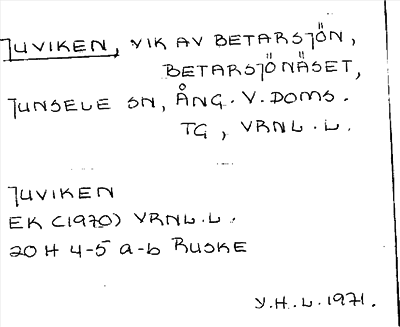 JUVIKEN, VIK AV BETARSJÖN,
BETARSJÖNÄSET,
JUNSELE SN, ÅNG. V. DOMS.
TG, VRNL. L.
JUVIKEN
EK (1970) VRNL. L.
20 H 4-5 a-b RUSKE
Y. H. L. 1971.